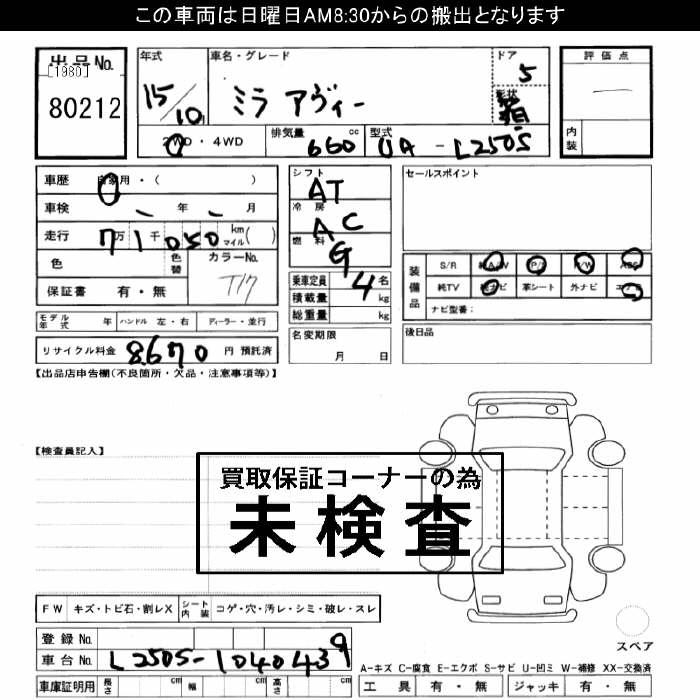 この車両は日曜日AM8:30からの搬出となります
出品No.
[1980]
80212
年式
15/10
車名・グレード
ミラ アヴィー
ドア
5
形状
箱
2WD・4WD
排気量 660 cc
型式 UA - L250S
評価点
内装
車歴 自家用・( )
車検 年 月
走行 7万1千050 km マイル( )
色
色替
カラーNo.
T17
保証書 有・無
シフト
AT
冷房
AC
燃料
G
乗車定員 4 名
積載量 kg
総重量 kg
セールスポイント
装備品
S/R 純A/W P/S P/W ABS
純TV 純ナビ 革シート 外ナビ エアB
ナビ型番:
モデル年式 年 ハンドル 左・右 ディーラー・並行
名変期限
月 日
後日品
リサイクル料金 8670 円 預託済
【出品店申告欄(不良箇所・欠品・注意事項等)】
【検査員記入】
買取保証コーナーの為
未検査
FW キズ・トビ石・割レX シート内装 コゲ・穴・汚レ・シミ・破レ・スレ
スペア
登録No.
車台No. L250S-1040439
A-キズ C-腐食 E-エクボ S-サビ U-凹ミ W-補修 XX-交換済
車庫証明用 長さ cm 幅 cm 高さ cm
工具 有・無 ジャッキ 有・無